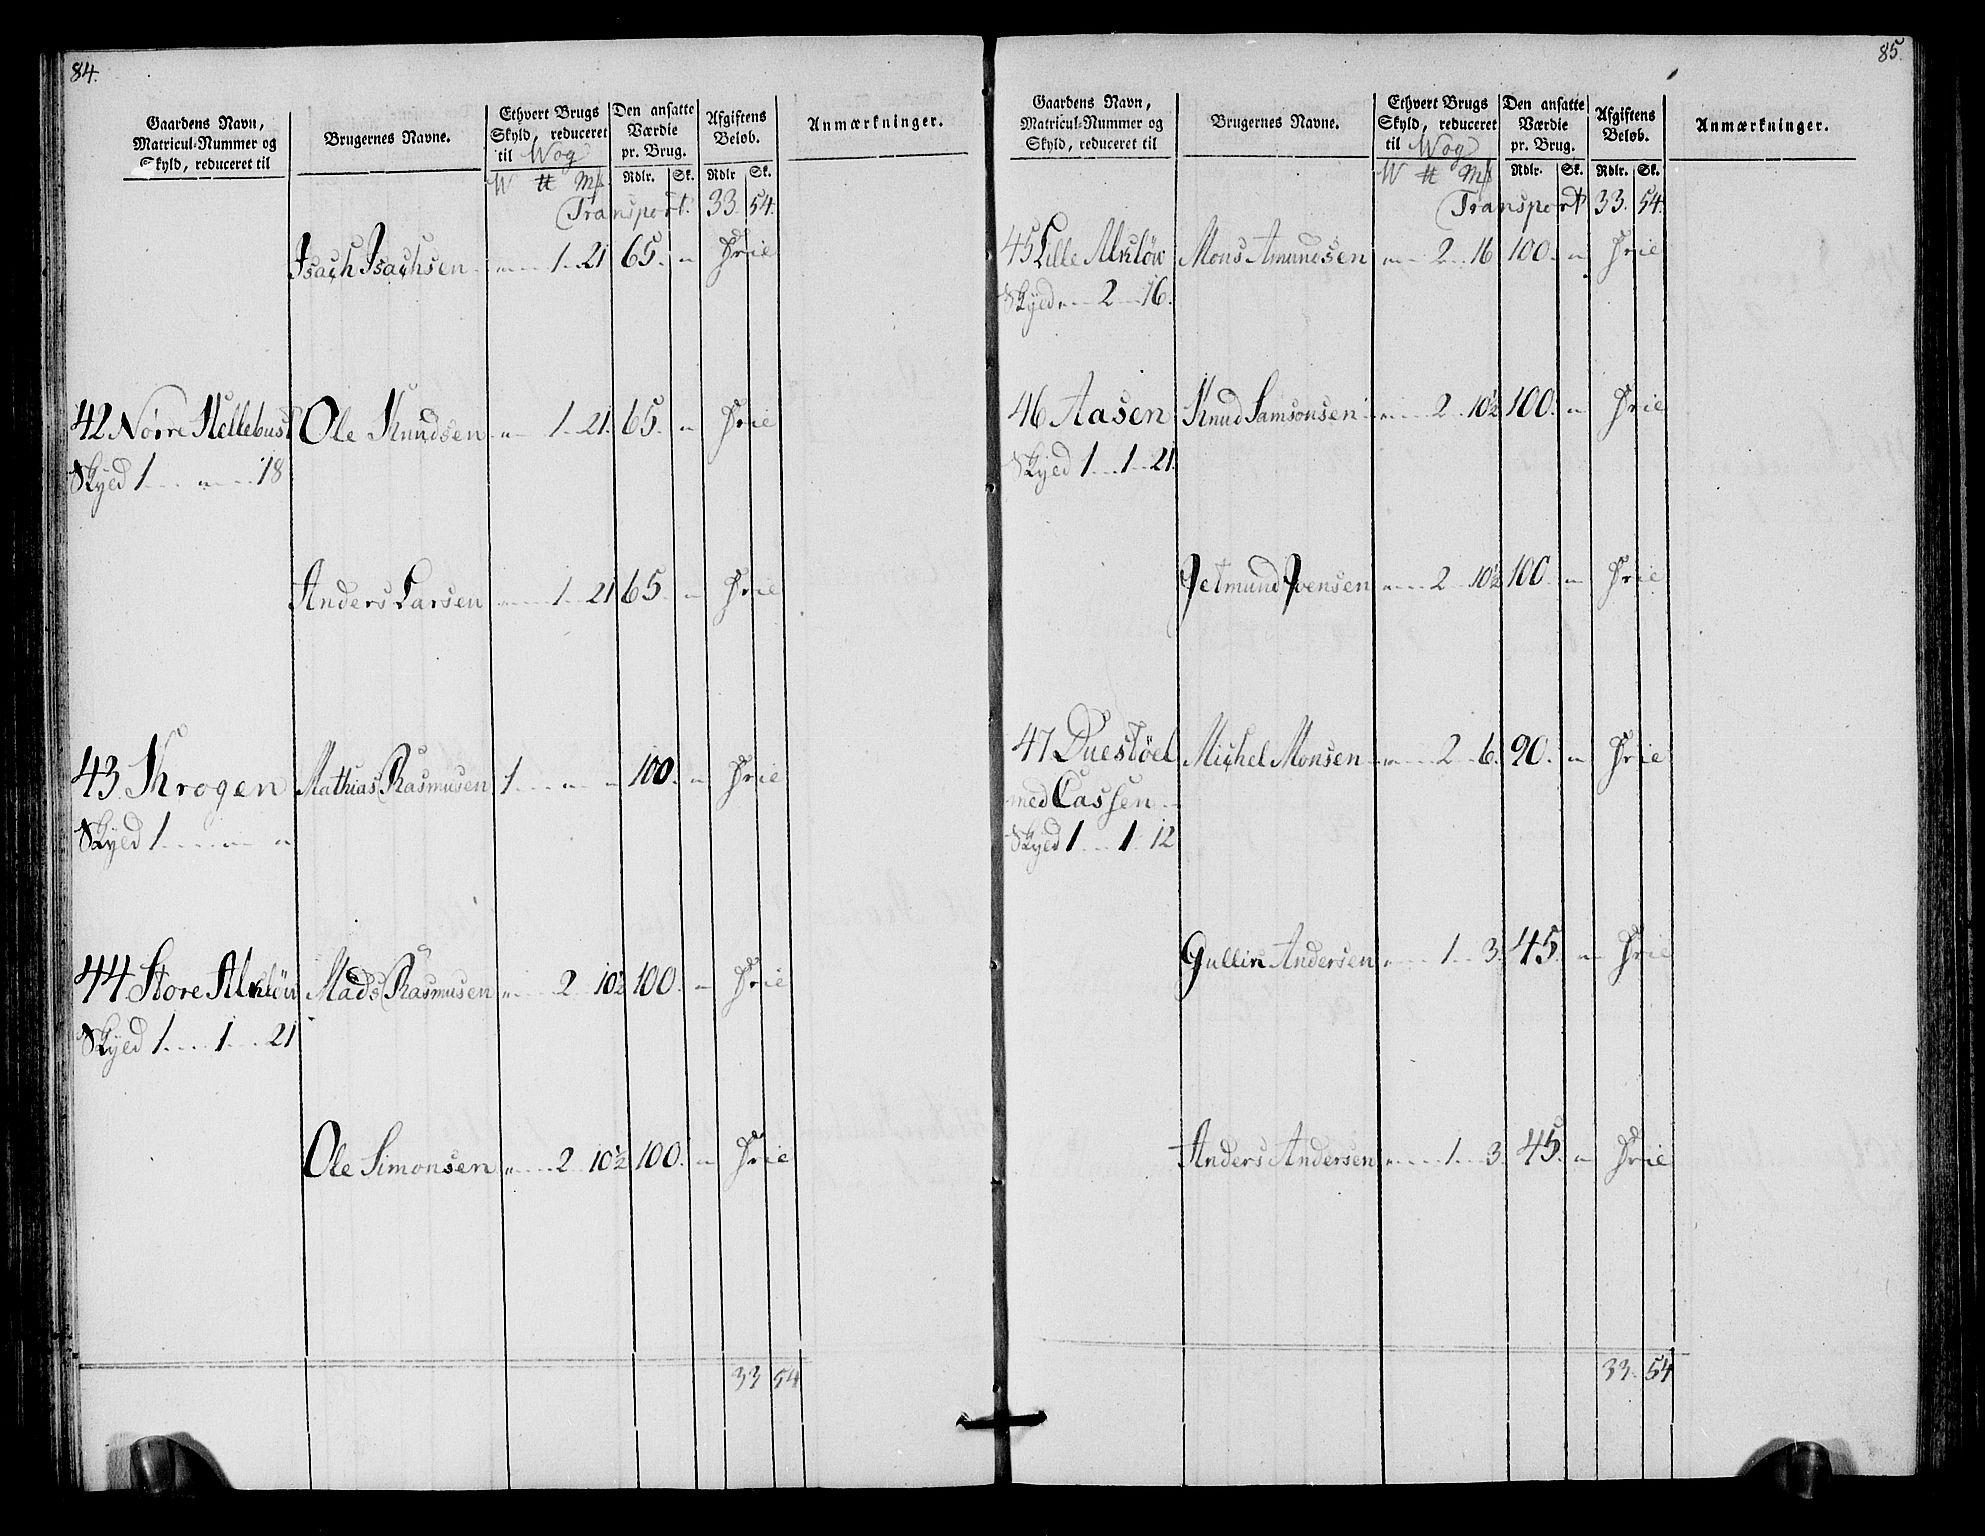 84.
Gaardens Navn, Matricul-Nummer og Skyld, reduceret til
Brugernes Navne.
Ethvert Brugs Skyld, reduceret til Wog
Den ansatte Værdie pr. Brug.
Afgiftens Beløb.
Anmærkninger.
W ℔ Mk Rdlr. Sk. Rdlr Sk.
Transport. 33. 54.
Isach Isachsen „ 1 21 65. „ Frie
42 Nörre Hellebust Ole Knudsen „ 1 21. 65. „ Frie
Skyld 1 „ 18
Anders Larsen „ 1 21 65. „ Frie
43. Krogen Mathias Rasmusen 1 „ „ 100. „ Frie
Skyld 1 „ „
44 Store Mads Rasmusen „ 2 10½ 100. „ Frie
Skyld 1 1 21
Ole Simonsen „ 2 10½ 100. „ Frie
33 54
85.
Gaardens Navn, Matricul-Nummer og Skyld, reduceret til
Brugernes Navne.
Ethvert Brugs Skyld, reduceret til Wog
Den ansatte Værdie pr. Brug.
Afgiftens Beløb.
Anmærkninger.
W ℔ Mk Rdlr. Sk. Rdlr. Sk.
Transport 33. 54.
45 Lille Mons Amundsen „ 2 16 100. „ Frie
Skyld „ 2 16.
46 Aasen Knud Samsonsen „ 2 10½ 100. „ Frie
Skyld 1 1 21.
Jetmund Ivensen „ 2 10½ 100. „ Frie
47 Duestöel Michel Monsen „ 2 6. 90. „ Frie
med Lassen
Skyld 1 1 12
Gullik Andersen „ 1 3. 45. „ Frie
Anders Andersen „ 1 3. 45. „ Frie
33. 54